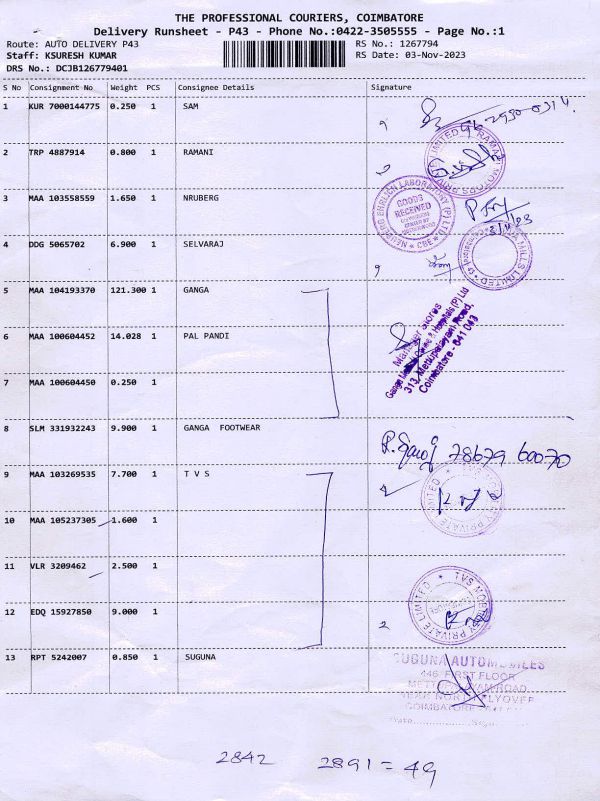 THE PROFESSIONAL COURIERS, COIMBATORE
Delivery Runsheet - P43 - Phone No.:0422-3505555 - Page No.:1
Route: AUTO DELIVERY P43 RS No.: 1267794
Staff: KSURESH KUMAR RS Date: 03-Nov-2023
DRS No.: DCJB126779401
S No Consignment No Weight PCS Consignee Details Signature
1 KUR 7000144775 0.250 1 SAM
2 TRP 4887914 0.800 1 RAMANI
3 MAA 103558559 1.650 1 NRUBERG
NEUBERG EHRLICH LABORATORY (P) LTD
GOODS RECEIVED
CBE
4 DDG 5065702 6.900 1 SELVARAJ
MILLS LIMITED
5 MAA 104193370 121.300 1 GANGA
6 MAA 100604452 14.028 1 PAL PANDI
Manager Stores
313, Mettupalayam Road,
Coimbatore - 641 043
7 MAA 100604450 0.250 1
8 SLM 331932243 9.900 1 GANGA FOOTWEAR
78679 60070
9 MAA 103269535 7.700 1 T V S
PRIVATE LIMITED
10 MAA 105237305 1.600 1
11 VLR 3209462 2.500 1
12 EDQ 15927850 9.000 1
TVS PRIVATE LIMITED
13 RPT 5242007 0.850 1 SUGUNA
SUGUNA AUTOMOBILES
446, FIRST FLOOR
COIMBATORE
Date
2842 2891 = 49